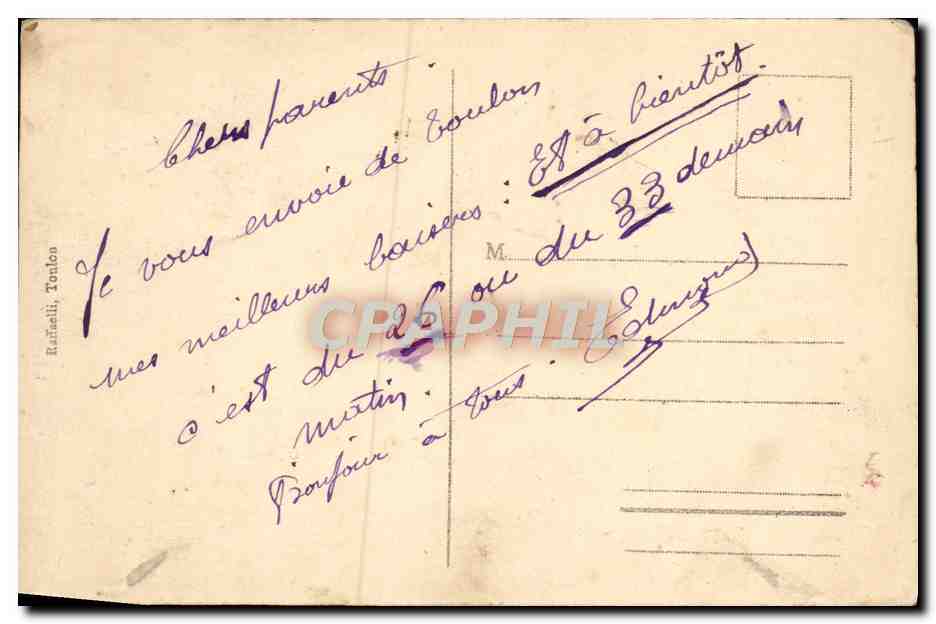 Chers parents.
Je vous envoie de Toulon
mes meilleurs baisers. Et à bientôt.
c'est du 26 ou du 33 demain
matin.
Bonjour à tous. Edmond
M.
Raffaelli, Toulon
CPAPHIL